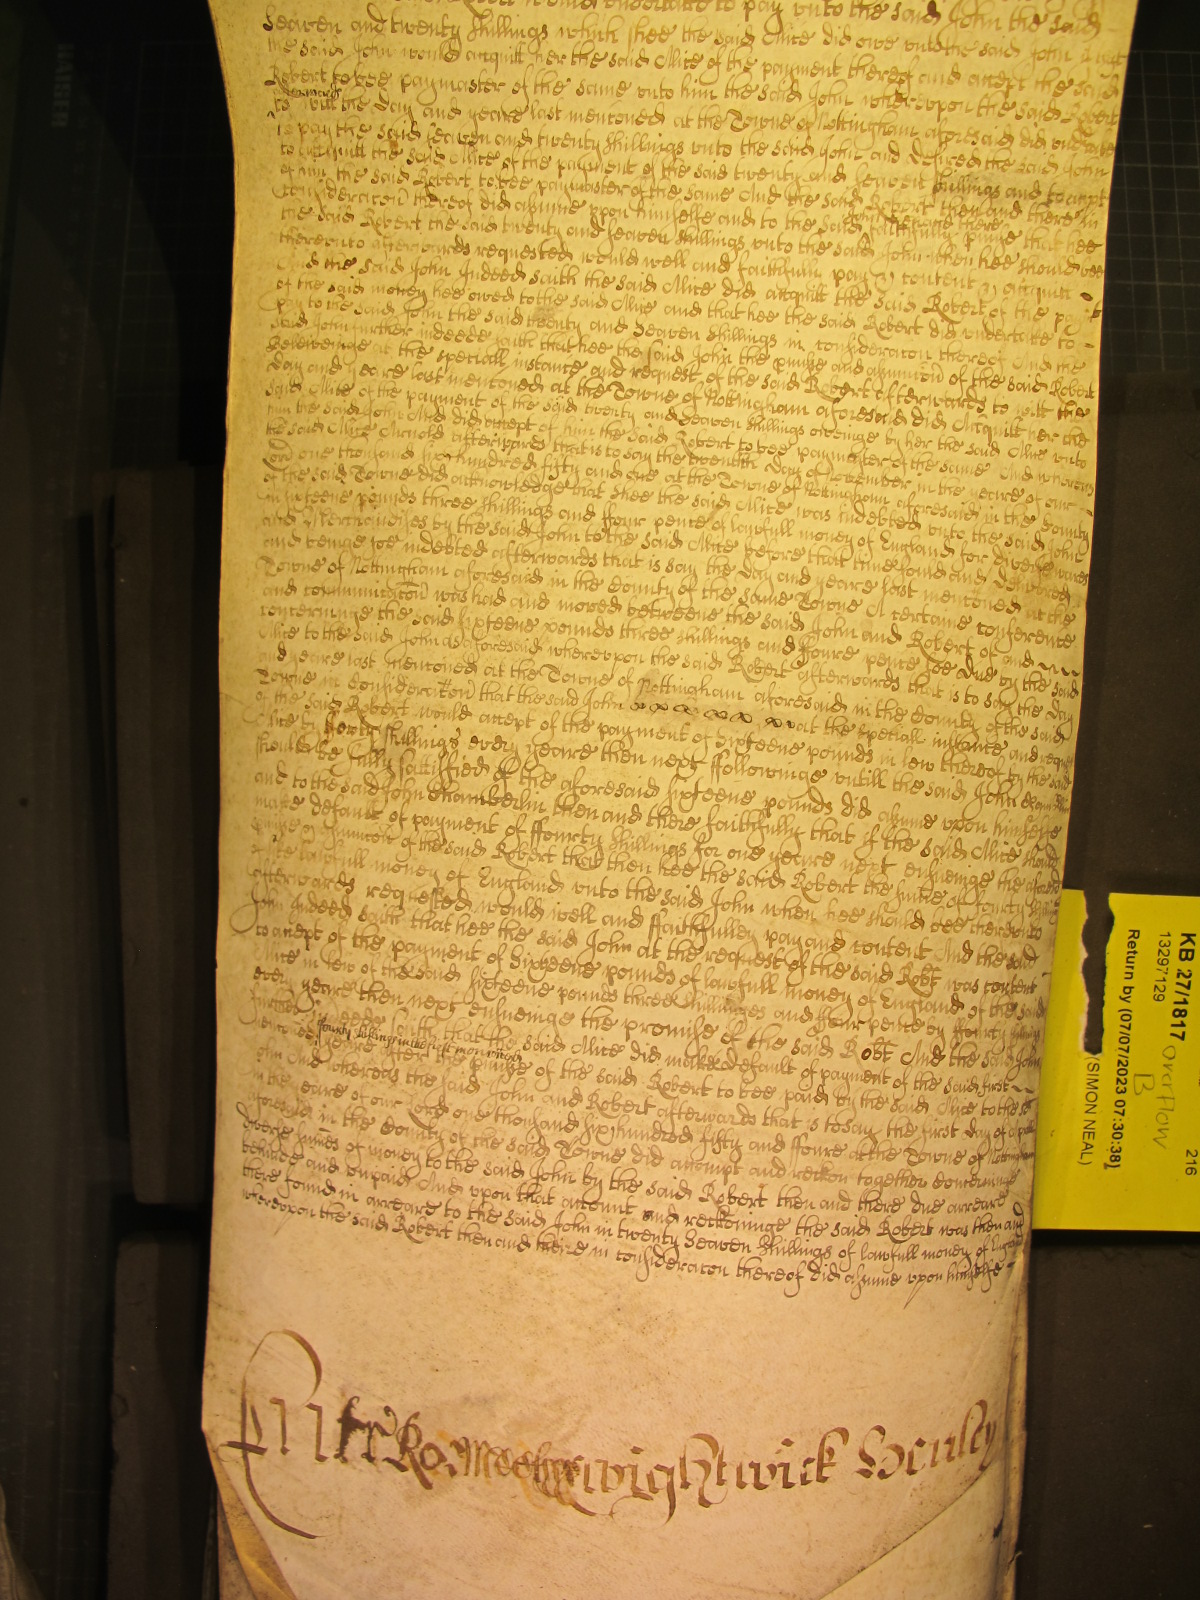 to pay unto the said John the said
Seaven and twenty shillings which shee the said Alice did owe unto the said John
the said John would acquitt her the said Alice of the payment thereof and accept the said
Robert to bee paymaster of the same unto him the said John whereupon the said Robert
afterwards
to witt the day and yeare last mentoned at the Towne of Nottingham aforesaid did undertake
to pay the said seaven and twenty shillings unto the said John and desired the said John
to acquitt the said Alice of the payment of the said twenty and seaven shillings and to accept
of him the said Robert to bee paymaster of the same And the said Robert then and there in
consideracon thereof did assume upon himselfe and to the said John then and there faithfully promise that hee
the said Robert the said twenty and seaven shillings unto the said John when hee should bee
thereunto afterwards requested would well and faithfully pay & content
And the said John Indeed saith the said Alice did acquitt the said Robert of the
of the said money hee owed to the said Alice and that hee the said Robert did undertake to
pay to the said John the said twenty and seaven shillings in consideracon thereof And the
said John further indeede saith that hee the said John the promise and assumcon of the said Robert
beleiveinge at the speciall instance and request of the said Robert afterwards to witt the
day and yeare last mentoned at the Towne of Nottingham aforesaid did Acquitt her the
said Alice of the payment of the said twenty and seaven shillings oweinge by her the said Alice unto
him the said John And did accept of him the said Robert to bee paymaster of the same And whereas
the said Alice Arnold afterwards that is to say the twentith day of November in the yeare of our
Lord one thousand six hundred fifty and one at the Towne of Nottingham aforesaid in the County
of the said Towne did acknowledge that shee the said Alice was indebted unto the said John
in sixteene pounds three shillings and ffour pence of lawfull money of England for diverse wares
and Merchandizes by the said John to the said Alice before that time sould and delivered
and beinge soe indebted afterwards that is say the day and yeare last mentoned at the
Towne of Nottingham aforesaid in the County of the same Towne A certaine conference
and communicacon was had and moved betweene the said John and Robert of and
concerninge the said sixteene pounds three shillings and ffoure pence soe due by the said
Alice to the said John as aforesaid whereupon the said Robert afterwards that is to say the day
and yeare last mentoned at the Towne of Nottingham aforesaid in the County of the said
Towne in Consideracon that the said John at the speciall instance and request
of the said Robert would accept of the payment of sixteene pounds in lew thereof by the said
Alice by forty shillings every yeare then next ffollowinge untill the said John Chamberlin
should be fully sattisfied of the aforesaid sixteene pounds did assume upon himselfe
and to the said John Chamberlin then and there faithfully that if the said Alice should
make default of payment of ffourty shillings for one yeare next ensueinge the aforesaid
promise or assumcon of the said Robert that then hee the said Robert the sume of fourty shillings
of like lawfull money of England unto the said John when hee should bee thereunto
afterwards requested would well and ffaithfully pay and content And the said
John Indeed saith that hee the said John at the request of the said Robt was content
to accept of the payment of sixteene pounds of lawfull money of England of the said
Alice in lew of the said sixteene pounds three shillings and ffour pence by ffourty shillings
every yeare then next ensueinge the promise of the said Robt And the said John
further Indeede saith that the said Alice did make default of payment of the said first
fourty shillings in the first
mentoned yeare after the promise of the said Robert to bee paid by the said Alice to the said
John And whereas the said John and Robert afterwards that is to say the first day of Aprill
in the yeare of our Lord one thousand six hundred fifty and ffoure at the Towne of Nottingham
aforesaid in the County of the said Towne did accompt and reckon together concerninge
diverse sumes of money to the said John by the said Robert then and there due arreare
behinde and unpaid And upon that accompt and reckoninge the said Robert was then and
there found in arreare to the said John in twenty seaven shillings of lawfull money of England
whereupon the said Robert then and there in consideracon thereof did assume upon himselfe
wightwick Henley
KB 27/1817
13297129
216
overflow
B
Return by (07/07/2023 07:30:38)
(SIMON NEAL)